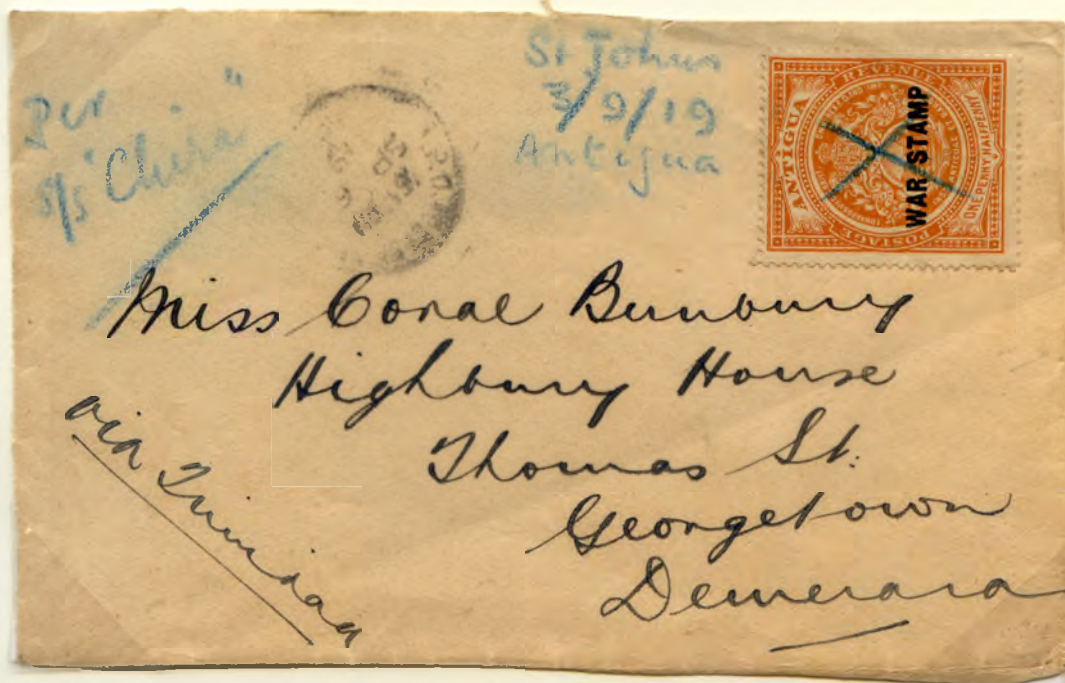 Per
S/S "China"
St Johns
3/9/19
Antigua
ANTIGUA
REVENUE
POSTAGE
ONE PENNY HALFPENNY
WAR STAMP
Miss Coral Bunbury
Highbury House
Thomas St.
Georgetown
Demerara
via Trinidad